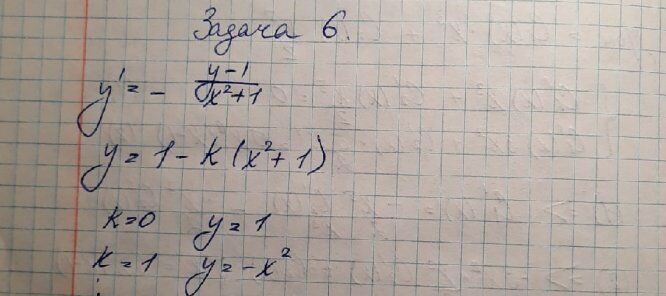 Задача 6.
y' = - \frac{y-1}{x²+1}
y = 1 - k(x²+1)
k=0 y = 1
k = 1 y = -x²